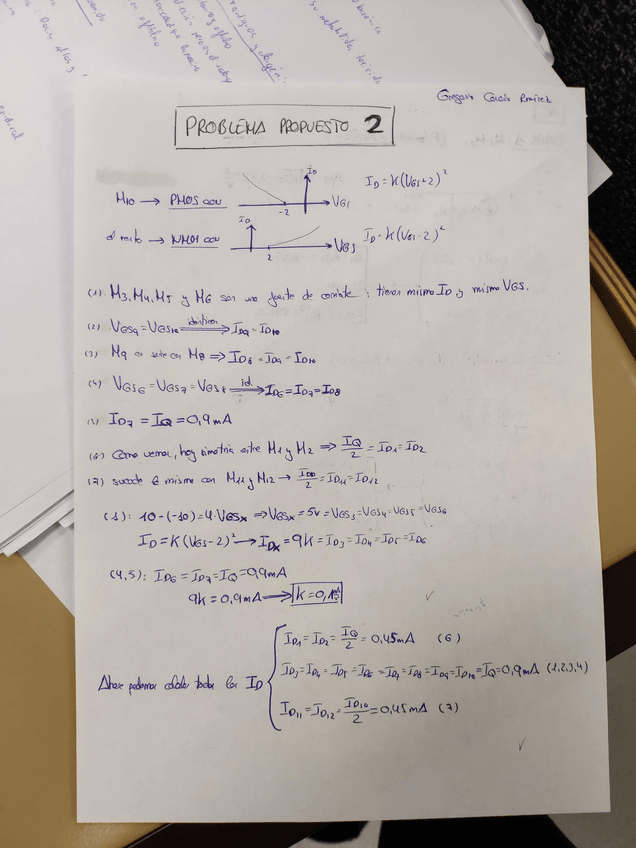 PROBLEMA PROPUESTO 2
M10 → PMOS con
ID
-2
VGS
ID = K(VGS+2)²
el resto → NMOS con
ID
2
VGS
ID = K(VGS-2)²
(1) M3, M4, M5 y M6 son una fuente de corriente : tienen mismo ID y mismo VGS.
(2) VGS9 = VGS10 ⟹ ID9 = ID10
(3) M9 en serie con M8 ⟹ ID8 = ID9 = ID10
(4) VGS6 = VGS7 = VGS8 ⟹ id. ID6 = ID7 = ID8
(5) ID7 = IQ = 0,9mA
(6) Como vemos, hay simetría entre M1 y M2 ⟹ IQ/2 = ID1 = ID2
(7) sucede lo mismo con M11 y M12 → ID10/2 = ID11 = ID12
(1): 10-(-10) = 4·VGSx ⟹ VGSx = 5V = VGS3 = VGS4 = VGS5 = VGS6
ID = K(VGS-2)² → IDx = 9K = ID3 = ID4 = ID5 = ID6
(4,5): ID6 = ID7 = IQ = 0,9mA
9K = 0,9mA ⟹ K = 0,1
ID1 = ID2 = IQ/2 = 0,45mA (6)
Ahora podemos calcular todas las ID
ID3 = ID4 = ID5 = ID6 = ID7 = ID8 = ID9 = ID10 = IQ = 0,9mA (1,2,3,4)
ID11 = ID12 = ID10/2 = 0,45mA (7)